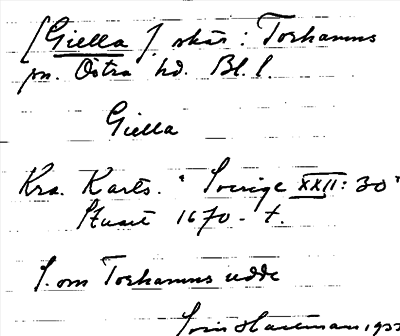 [Giella] skär: Torhamns
sn. Östra hd. Bl. l.
Giella
Kra. Kartv. "Sverige XXII: 30"
Stuart 1670-t.
S. om Torhamns udde
Hartman